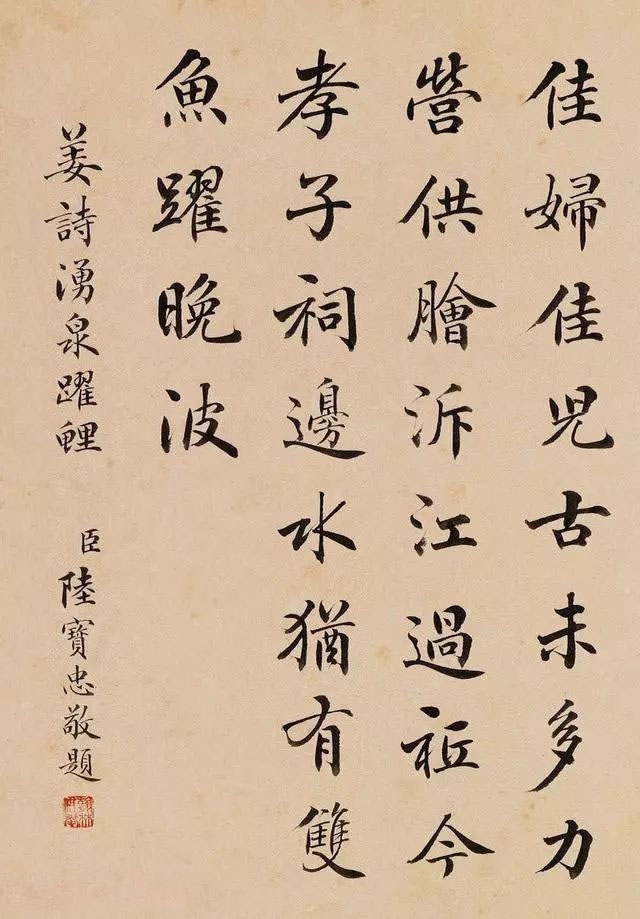 佳婦佳児古未多力
營供膾泝江過祗今
孝子祠邊水猶有雙
魚躍晚波
姜詩湧泉躍鯉
臣陸寶忠敬題